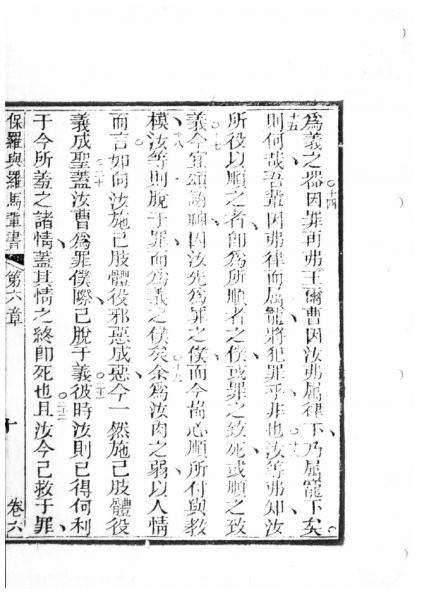 爲義之器十四因罪再弗王爾曹因汝弗屬律下乃屬寵下矣
十五則何哉吾輩因弗律而屬寵將犯罪乎非也十六汝等弗知汝
所役以順之者卽爲所順者之僕或罪之致死或順之致
義十七今宜頌謝神因汝先爲罪之僕而今崙心順所付與教
模十八汝等則脫于罪而爲義之僕矣十九余爲汝肉之弱以人情
而言如向汝施己肢體役邪惡成惡今一然施己肢體役
義成聖二十蓋汝曹爲罪僕際己脫于義二一彼時汝則已得何利
于今所羞之諸情蓋其情之終卽死也二二且汝今已救于罪
保羅與羅馬輩書 第六章 十 卷六